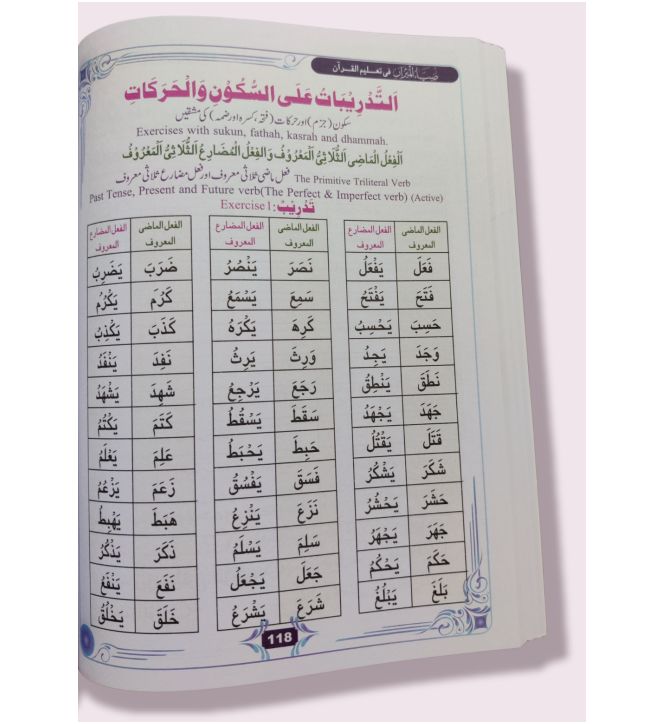 فی تعلیم القرآن
اَلتَّدْرِیْبَاتُ عَلَی السُّکُوْنِ وَالْحَرَکَاتِ
سکون (جزم) اور حرکات (فتحہ، کسرہ اور ضمہ) کی مشقیں
Exercises with sukun, fathah, kasrah and dhammah.
اَلْفِعْلُ الْمَاضِی الثُّلَاثِیُّ الْمَعْرُوْفُ وَالْفِعْلُ الْمُضَارِعُ الثُّلَاثِیُّ الْمَعْرُوْفُ
فعل ماضی ثلاثی معروف اور فعل مضارع ثلاثی معروف The Primitive Triliteral Verb
Past Tense, Present and Future verb(The Perfect & Imperfect verb) (Active)
تَدْرِیْبٌ: Exercise1
الفعل الماضی الفعل المضارع الفعل الماضی الفعل المضارع الفعل الماضی الفعل المضارع
المعروف المعروف المعروف المعروف المعروف المعروف
فَعَلَ یَفْعَلُ نَصَرَ یَنْصُرُ ضَرَبَ یَضْرِبُ
فَتَحَ یَفْتَحُ سَمِعَ یَسْمَعُ کَرُمَ یَکْرُمُ
حَسِبَ یَحْسِبُ کَرِهَ یَکْرَهُ کَذَبَ یَکْذِبُ
وَجَدَ یَجِدُ وَرِثَ یَرِثُ نَفِدَ یَنْفَدُ
نَطَقَ یَنْطِقُ رَجَعَ یَرْجِعُ شَهِدَ یَشْهَدُ
جَهَدَ یَجْهَدُ سَقَطَ یَسْقُطُ کَتَمَ یَکْتُمُ
قَتَلَ یَقْتُلُ حَبِطَ یَحْبَطُ عَلِمَ یَعْلَمُ
شَکَرَ یَشْکُرُ فَسَقَ یَفْسُقُ زَعَمَ یَزْعُمُ
حَشَرَ یَحْشُرُ نَزَعَ یَنْزِعُ هَبَطَ یَهْبِطُ
جَهَرَ یَجْهَرُ سَلِمَ یَسْلَمُ ذَکَرَ یَذْکُرُ
حَکَمَ یَحْکُمُ جَعَلَ یَجْعَلُ نَفَعَ یَنْفَعُ
بَلَغَ یَبْلُغُ شَرَعَ یَشْرَعُ خَلَقَ یَخْلُقُ
118